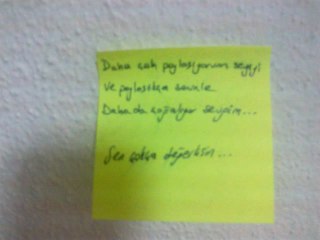 Daha çok paylaşıyorum sevgiyi
Ve paylaştıkça
Daha da çoğalıyor sevgim...
Sen çokça değerlisin...